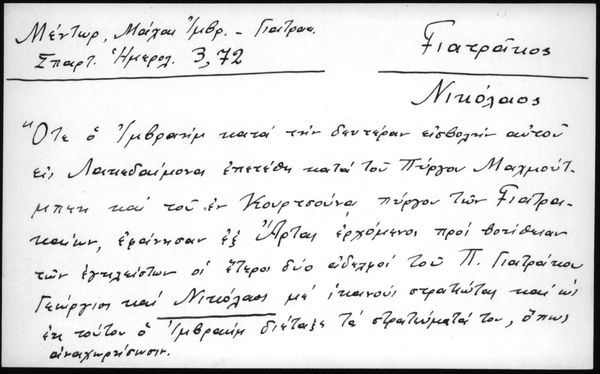 Μέντωρ, Μάχαι Ἰμβρ. – Γιατρακ.
Σπαρτ. Ἡμερολ. 3,72
Γιατράκος
Νικόλαος
"Ὅτε ὁ Ἰμβραήμ κατά τήν δευτέραν εἰσβολήν αὐτοῦ
εἰς Λακεδαίμονα ἐπετέθη κατά τοῦ Πύργου Μαχμούτ-
μπεη καί τοῦ ἐν Κουρτσούνα πύργου τῶν Γιατρα-
καίων, ἐφαίνησαν ἐξ Ἄρτας ἐρχόμενοι πρός βοήθειαν
τῶν ἐγκλείστων οἱ ἕτεροι δύο ἀδελφοί τοῦ Π. Γιατράκου
Γεώργιος καί Νικόλαος μέ ἱκανούς στρατιώτας καί ὡς
ἐκ τούτου ὁ Ἰμβραήμ διέταξε τά στρατεύματά του, ὅπως
ἀναχωρήσωσιν.